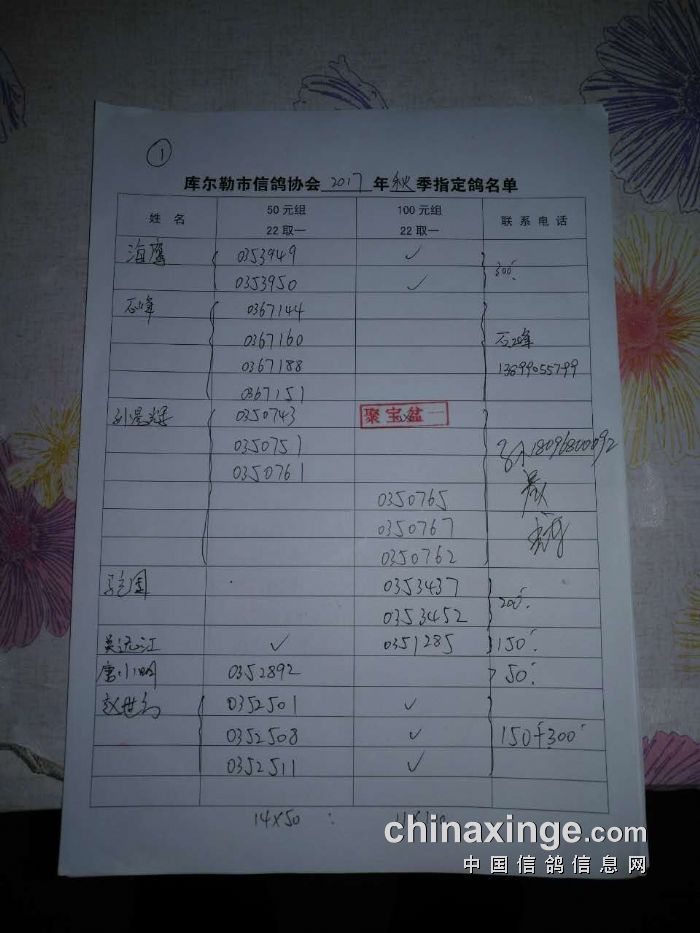 ①
库尔勒市信鸽协会 2017 年 秋 季指定鸽名单
姓 名 50元组 22取一 100元组 22取一 联系电话
海鹰 0353949 ✓
0353950 ✓ 300
石峰 0367144
0367160 石峰
0367188 13899055799
0367151
0350743 聚宝盆一
0350751 18096800092
0350761
0350765
0350767
0350762
0353437
0353452 200
吴远江 ✓ 0351285 150
唐小明 0352892 50
0352501 ✓
0352508 ✓ 150+300
0352511 ✓
14×50
chinaxinge.com
中国信鸽信息网